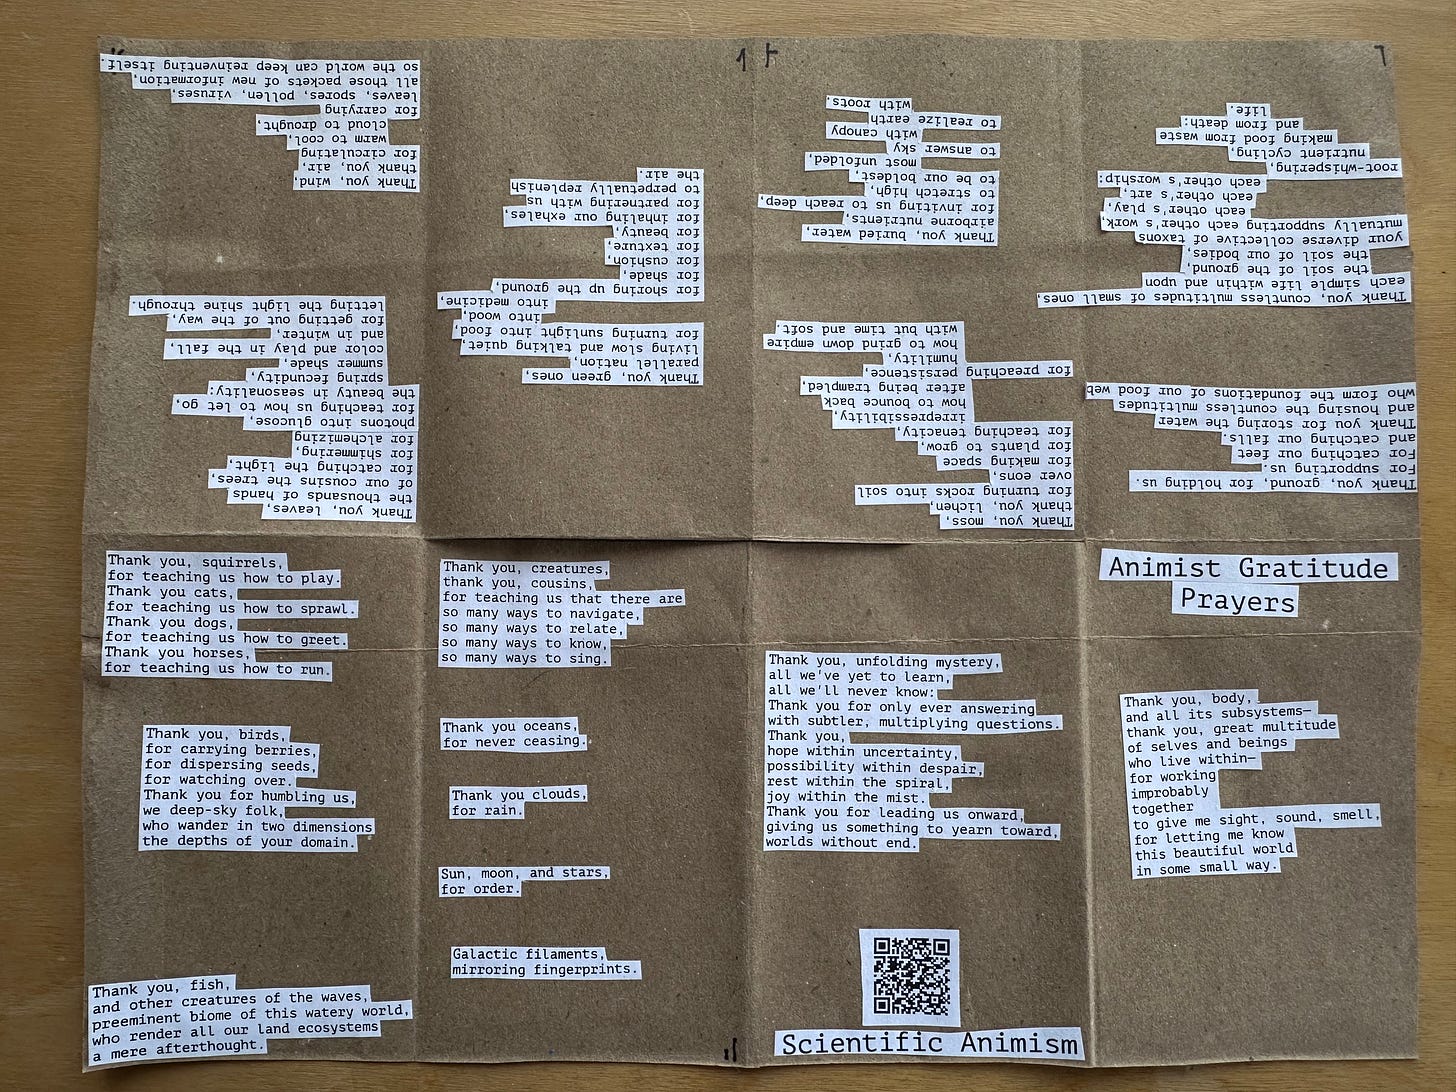 Animist Gratitude
Prayers
Thank you, body,
and all its subsystems—
thank you, great multitude
of selves and beings
who live within—
for working
improbably
together
to give me sight, sound, smell,
for letting me know
this beautiful world
in some small way.
Thank you, ground, for holding us.
For supporting us.
For catching our feet
and catching our falls.
Thank you for storing the water
and housing the countless multitudes
who form the foundations of our food web
Thank you, countless multitudes of small ones,
each simple life within and upon
the soil of the ground,
the soil of our bodies,
your diverse collective of taxons
mutually supporting each other's work,
each other's play,
each other's art,
each other's worship:
root-whispering,
nutrient cycling,
making food from waste
and from death:
life.
Thank you, moss,
thank you, lichen,
for turning rocks into soil
over eons,
for making space
for plants to grow,
for teaching tenacity,
irrepressibility,
how to bounce back
after being trampled,
for preaching persistence,
humility,
how to grind down empire
with but time and soft.
Thank you, buried water,
airborne nutrients,
for inviting us to reach deep,
to stretch high,
to be our boldest,
most unfolded,
to answer sky
with canopy
to realize earth
with roots.
Thank you, green ones,
parallel nation,
living slow and talking quiet,
for turning sunlight into food,
into wood,
into medicine,
for shoring up the ground,
for shade,
for cushion,
for texture,
for beauty,
for inhaling our exhales,
for partnering with us
to perpetually replenish
the air.
Thank you, leaves,
the thousands of hands
of our cousins the trees,
for catching the light,
for shimmering,
for alchemizing
photons into glucose,
for teaching us how to let go,
the beauty in seasonality:
spring fecundity,
summer shade,
color and play in the fall,
and in winter,
for getting out of the way,
letting the light shine through.
Thank you, wind,
thank you, air,
for circulating
warm to cool,
cloud to drought,
for carrying
leaves, spores, pollen, viruses,
all those packets of new information,
so the world can keep reinventing itself.
Thank you, squirrels,
for teaching us how to play.
Thank you cats,
for teaching us how to sprawl.
Thank you dogs,
for teaching us how to greet.
Thank you horses,
for teaching us how to run.
Thank you, birds,
for carrying berries,
for dispersing seeds,
for watching over.
Thank you for humbling us,
we deep-sky folk,
who wander in two dimensions
the depths of your domain.
Thank you, fish,
and other creatures of the waves,
preeminent biome of this watery world,
who render all our land ecosystems
a mere afterthought.
Thank you, creatures,
thank you, cousins,
for teaching us that there are
so many ways to navigate,
so many ways to relate,
so many ways to know,
so many ways to sing.
Thank you oceans,
for never ceasing.
Thank you clouds,
for rain.
Sun, moon, and stars,
for order.
Galactic filaments,
mirroring fingerprints.
Thank you, unfolding mystery,
all we've yet to learn,
all we'll never know:
Thank you for only ever answering
with subtler, multiplying questions.
Thank you,
hope within uncertainty,
possibility within despair,
rest within the spiral,
joy within the mist.
Thank you for leading us onward,
giving us something to yearn toward,
worlds without end.
Scientific Animism